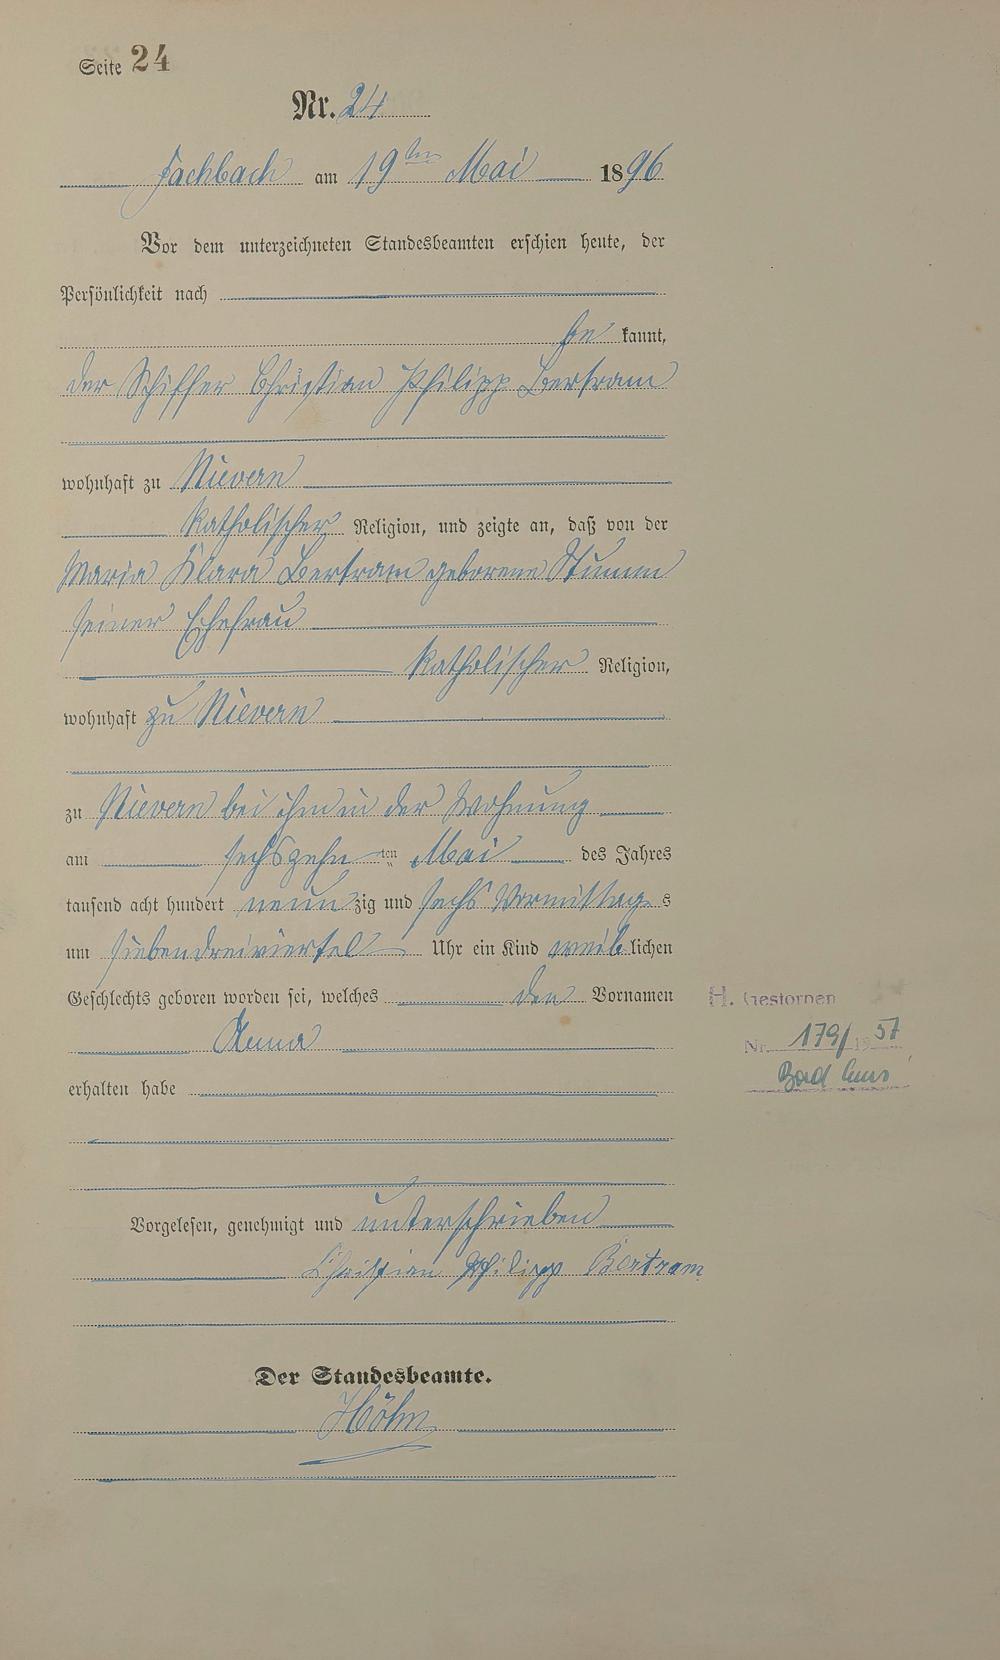 Seite 24
Nr. 24
Fachbach am 19ten Mai 1896
Vor dem unterzeichneten Standesbeamten erschien heute, der
Persönlichkeit nach
be kannt,
der Schiffer Christian Philipp Bertram
wohnhaft zu Nievern
katholischer Religion, und zeigte an, daß von der
Maria Klara Bertram geborene Stumm
seiner Ehefrau
katholischer Religion,
wohnhaft zu Nievern
zu Nievern bei ihm in der Wohnung
am sechszehn ten Mai des Jahres
tausend acht hundert neun zig und sechs Vormittag s
um siebendreiviertel Uhr ein Kind weib lichen
Geschlechts geboren worden sei, welches den Vornamen
Anna
erhalten habe
H. Gestorben
Nr. 179/1957
Bad Ems
Vorgelesen, genehmigt und unterschrieben
Christian Philipp Bertram
Der Standesbeamte.
Höhn